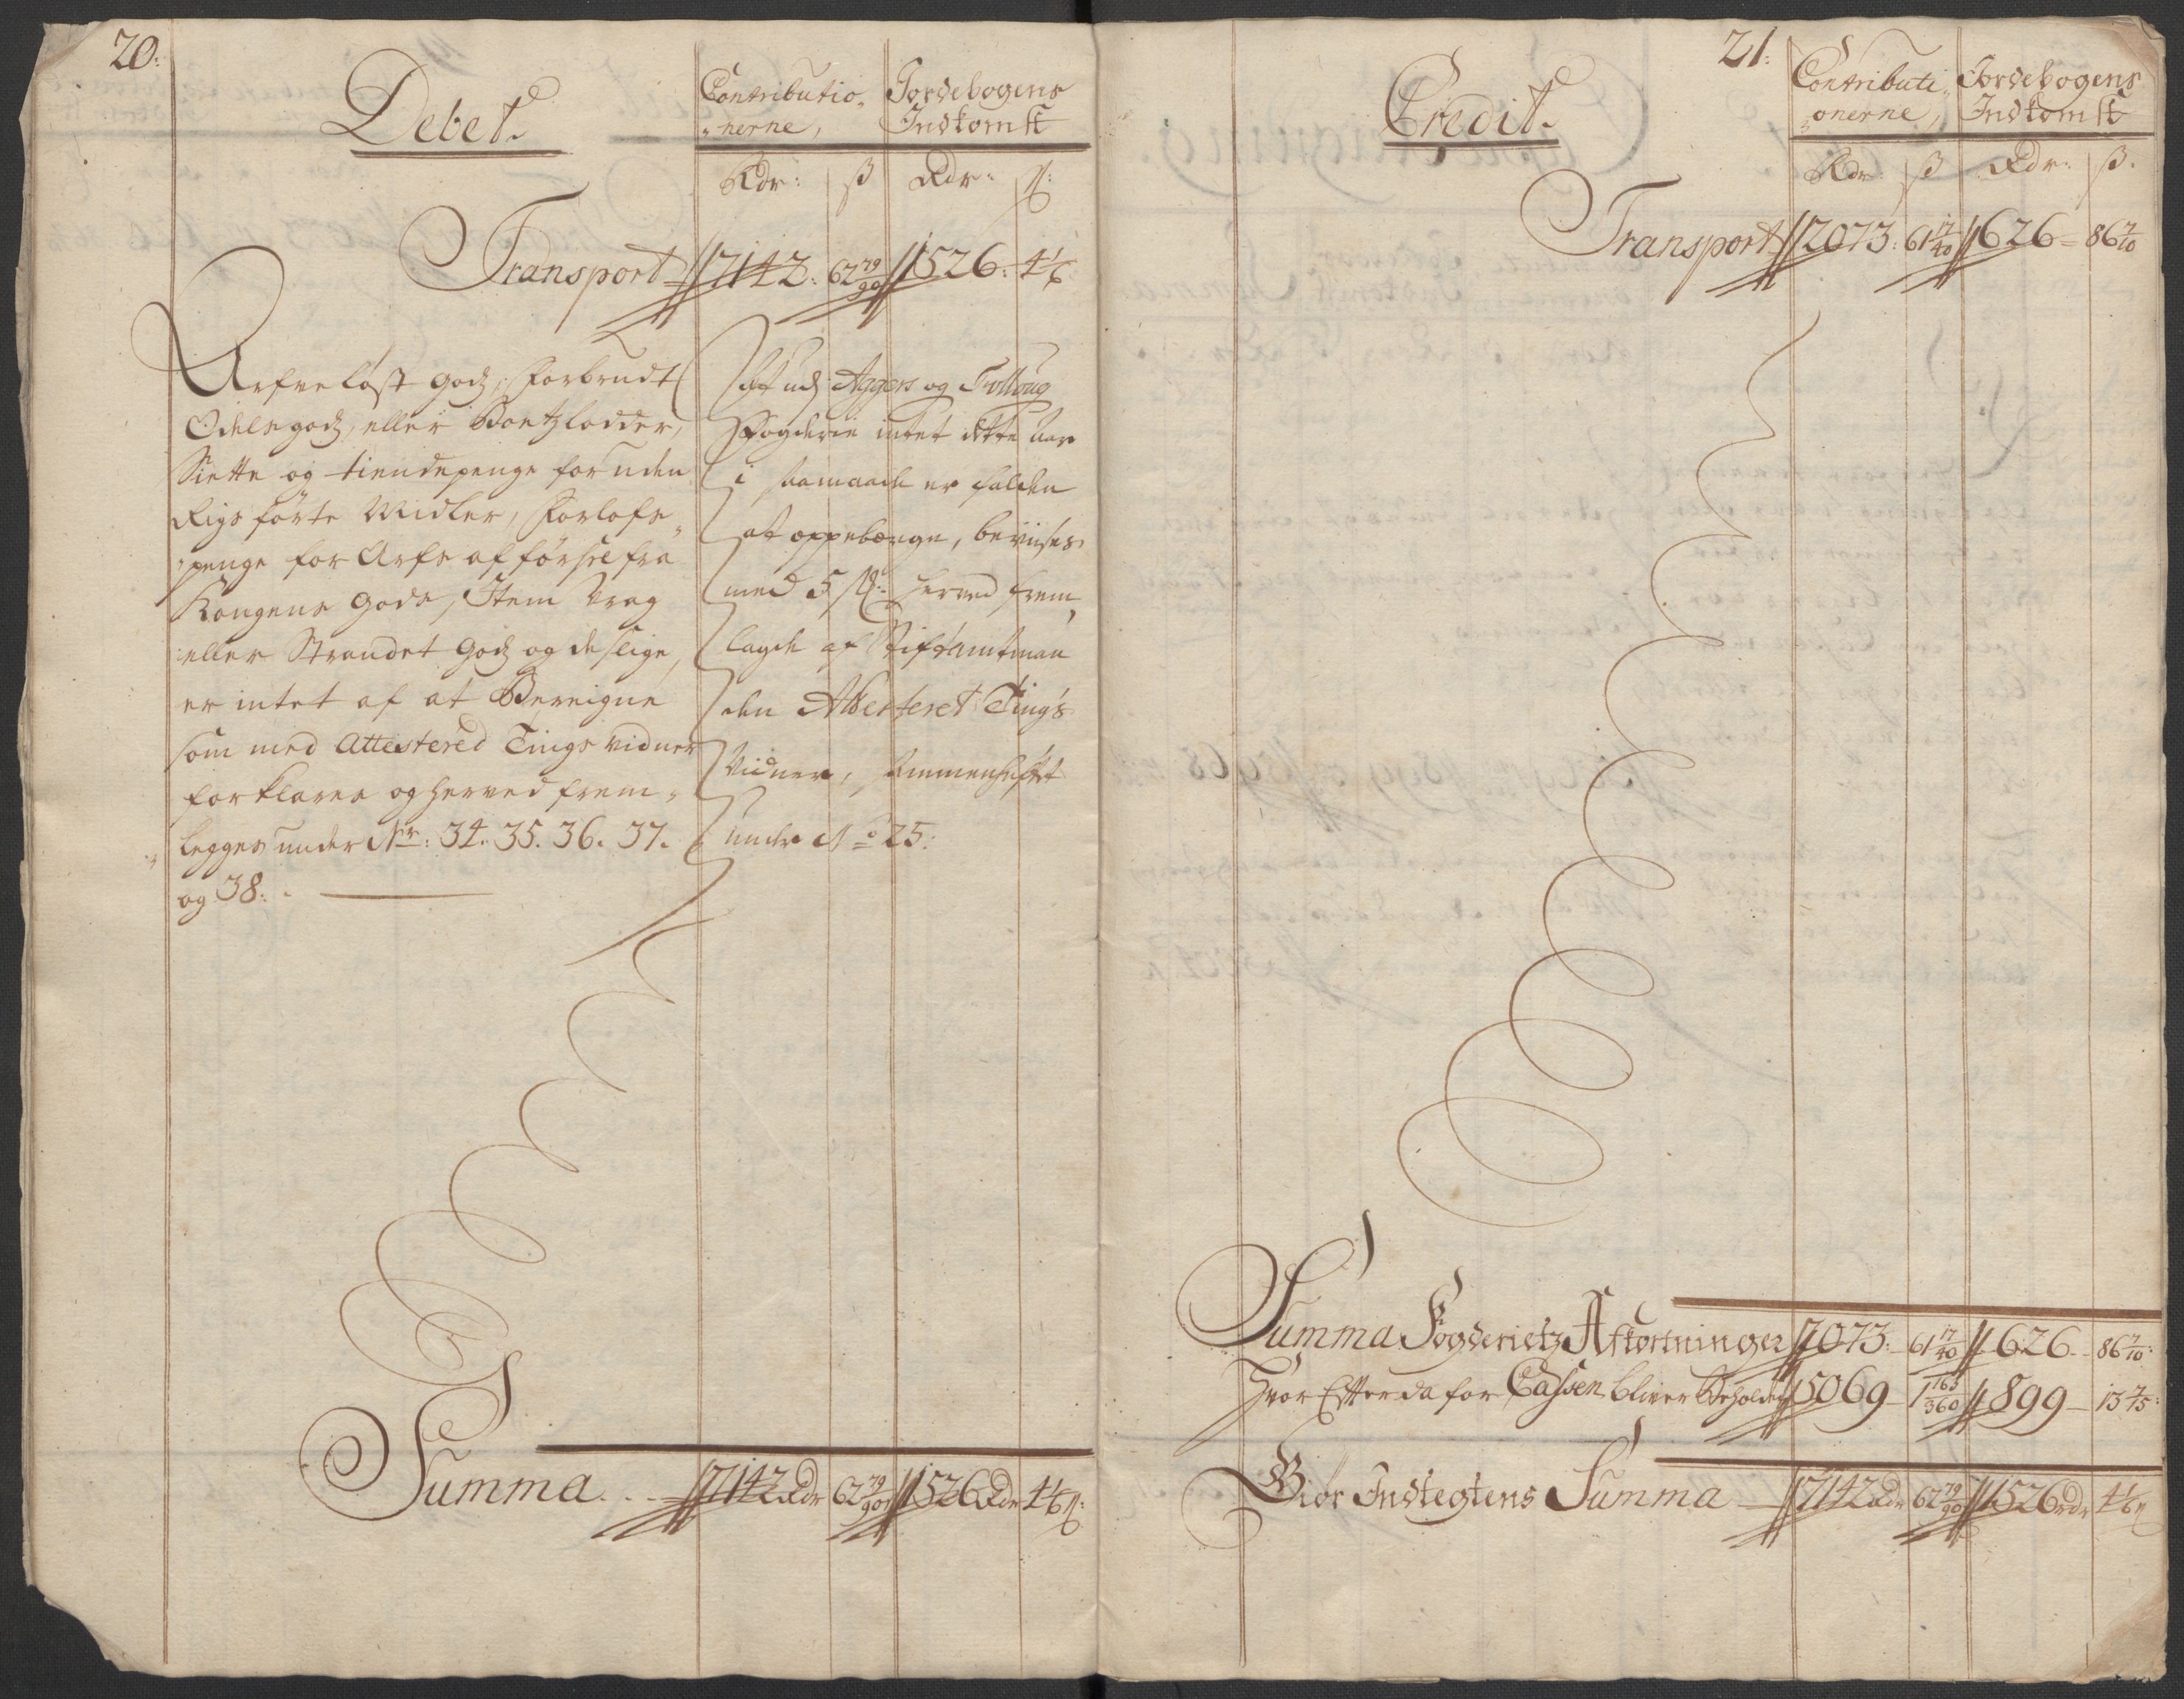 20:
Debet.
Contributio„
„nerne,
Jordebogens
Indkomst
Rdr: ß Rdr: ß:
Transport 7142: 62 79/90 1526: 4 1/6
Arfveløst godz, Forbrudt
Odelsgodz, eller Boetzlodder,
Siette og tiendepenge for uden
Rigs førte Midler, Forlofs„
„penge for Arfs afførsel fra
Kongens Gods, Item Vrag
eller Strandet Godz og deslige,
er intet af at Bereigne
som med Attestered Tings vidner
forklares og herved frem„
legges under Nr: 34. 35. 36. 37.
og 38:
At udj Aggers og Folloug
Fogderie intet dette Aar
i saamaade er falden
at oppebærge, beviises
med 5 st: herved frem„
lagde af Stiftamtman„
den Attesteret Tings
Vidner, sammenheftet
under No 25:
Summa 7142 Rdr 62 79/90 1526 Rdr 4 1/6 ß:
21:
Credit.
Contributi„
„onerne,
Jordebogens
Indkomst
Rdr: ß Rdr: ß.
Transport 2073: 61 17/40 626 86 7/10
Summa Fogderietz Afkortninger 2073: 61 17/40 626 86 7/10:
Hvor Efter da for Cassen bliver Beholden 5069 1 163/360 899 13 7/15:
Giør Indtegtens Summa 7142 Rdr 62 79/90 1526 Rdr 4 1/6 ß